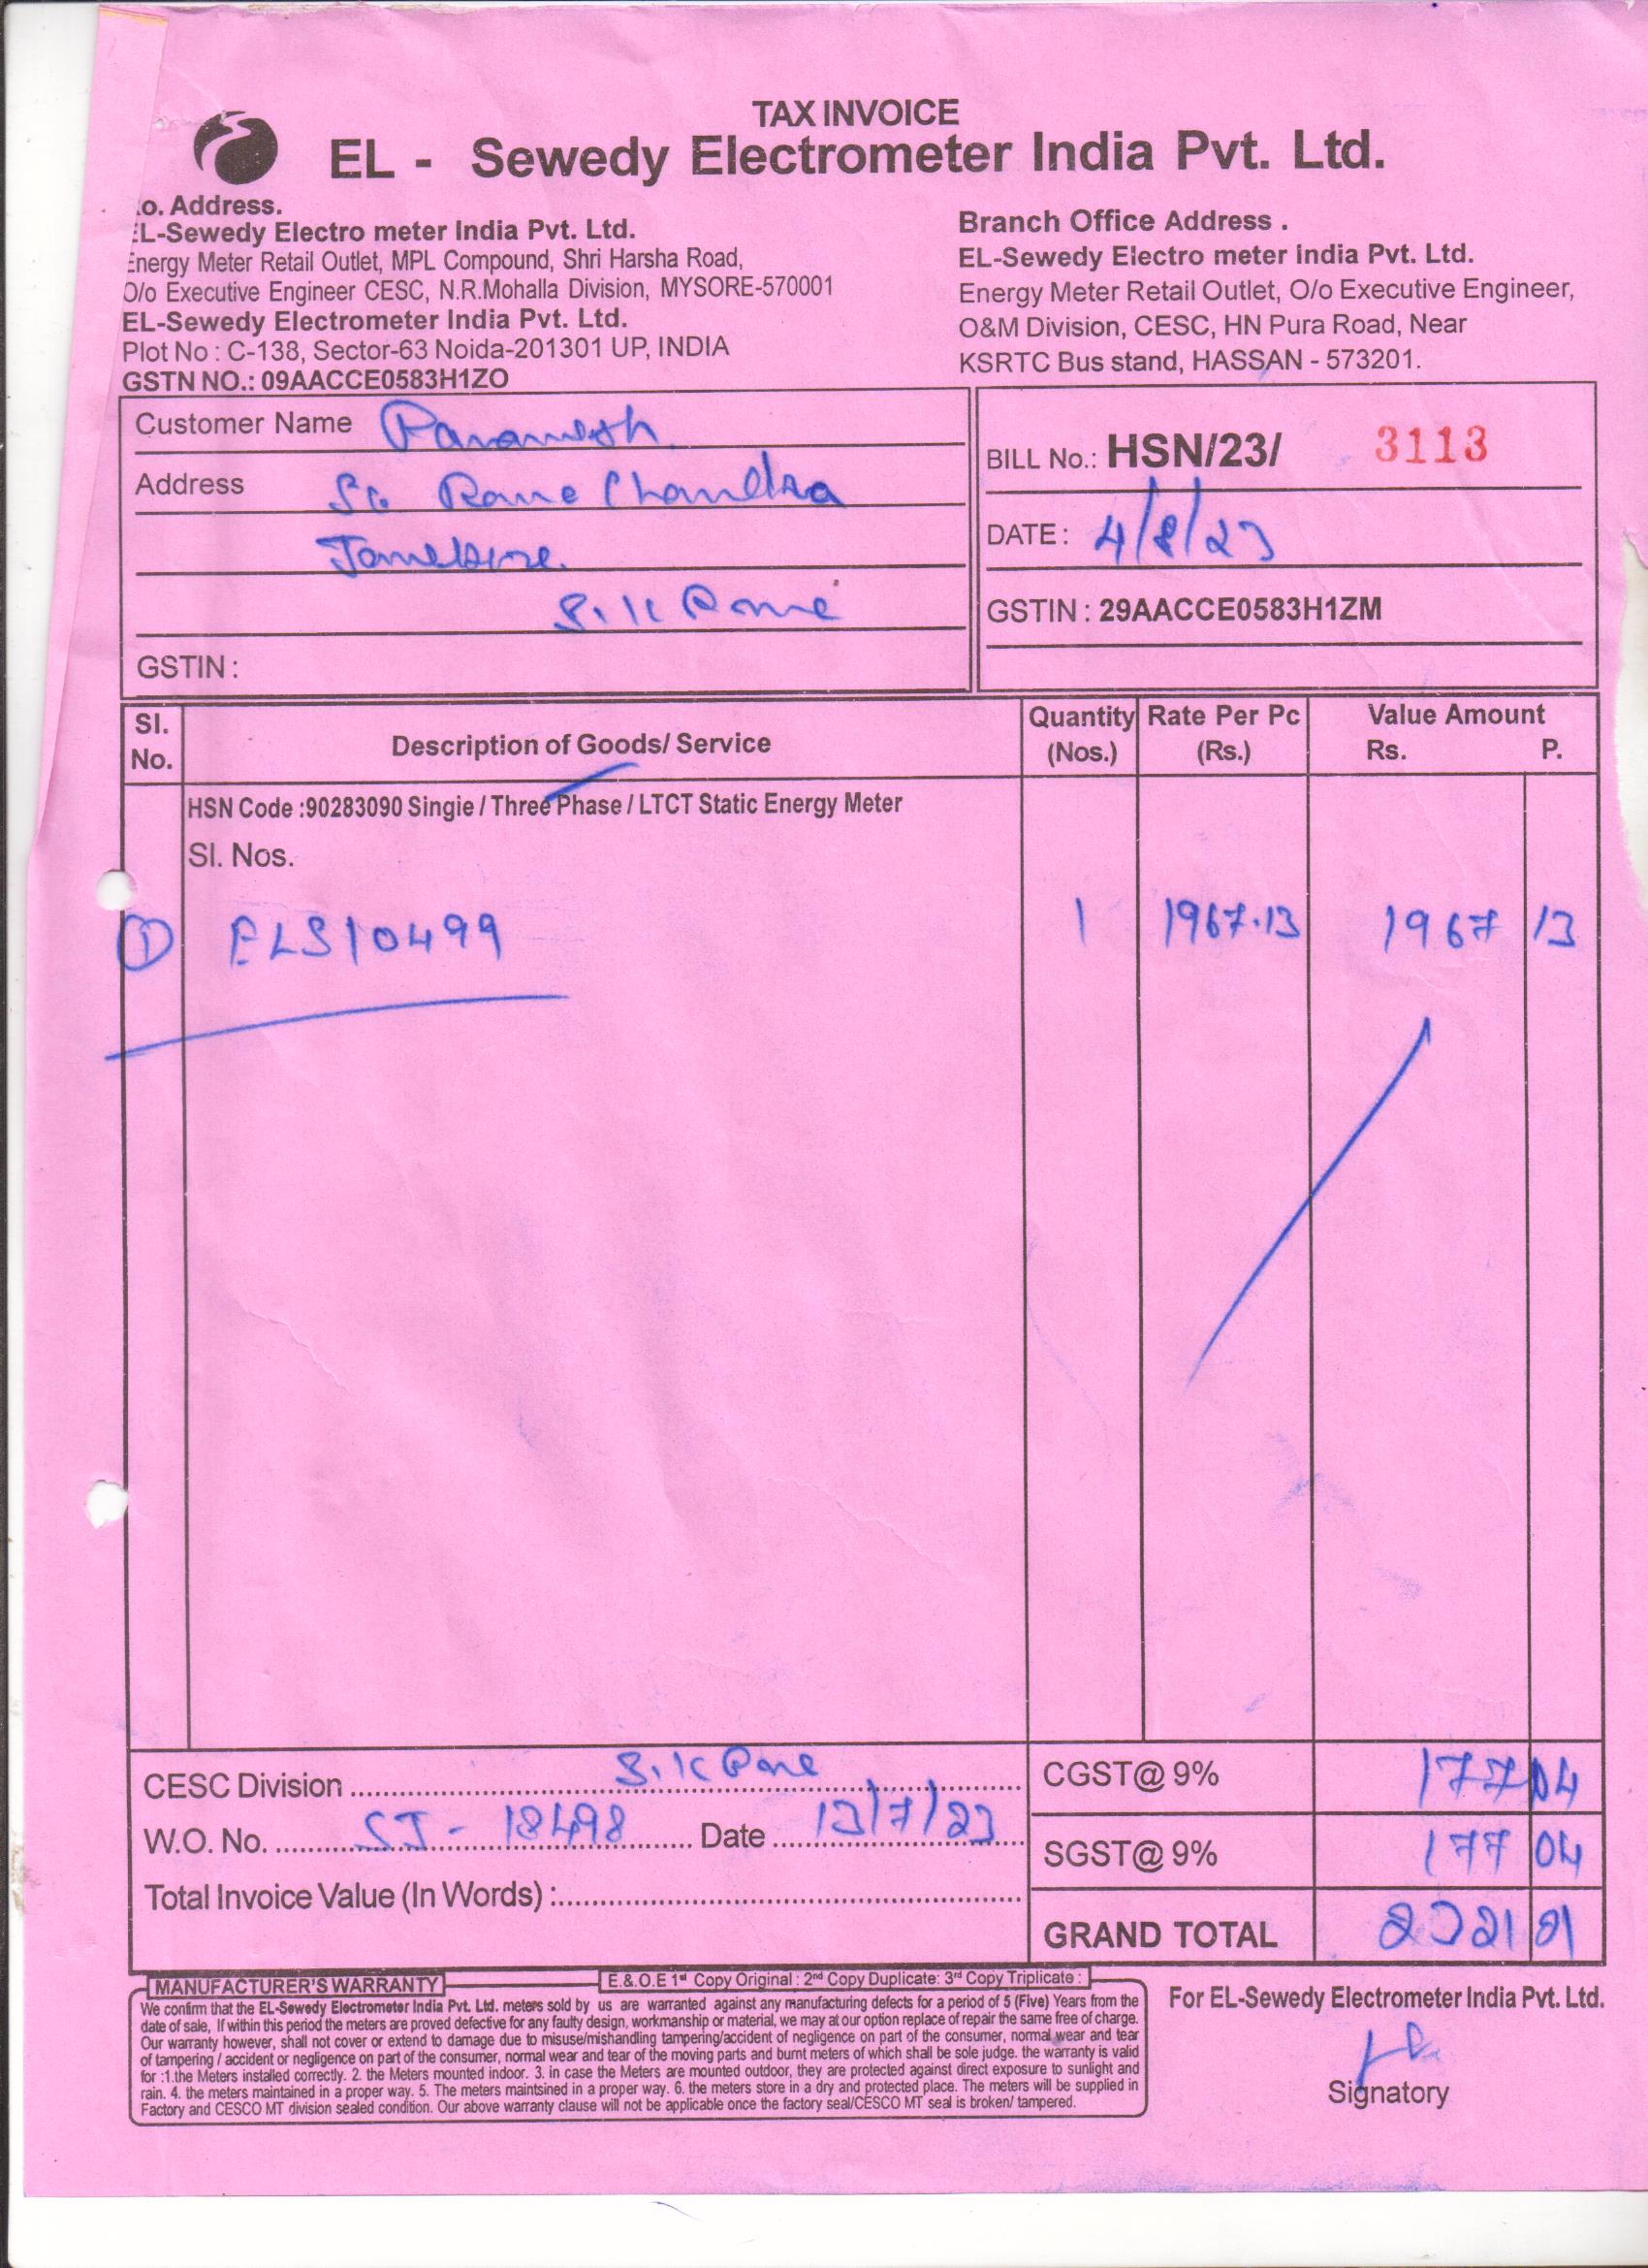 TAX INVOICE
EL - Sewedy Electrometer India Pvt. Ltd.
o. Address.
EL-Sewedy Electro meter India Pvt. Ltd.
Energy Meter Retail Outlet, MPL Compound, Shri Harsha Road,
O/o Executive Engineer CESC, N.R.Mohalla Division, MYSORE-570001
EL-Sewedy Electrometer India Pvt. Ltd.
Plot No : C-138, Sector-63 Noida-201301 UP, INDIA
GSTN NO.: 09AACCE0583H1ZO
Branch Office Address .
EL-Sewedy Electro meter India Pvt. Ltd.
Energy Meter Retail Outlet, O/o Executive Engineer,
O&M Division, CESC, HN Pura Road, Near
KSRTC Bus stand, HASSAN - 573201.
Customer Name Paramesh
Address Chandra
GSTIN :
BILL No.: HSN/23/ 3113
DATE : 4/8/23
GSTIN : 29AACCE0583H1ZM
Sl. No. Description of Goods/ Service Quantity (Nos.) Rate Per Pc (Rs.) Value Amount Rs. P.
HSN Code :90283090 Singie / Three Phase / LTCT Static Energy Meter
Sl. Nos.
1 ELS10499 1 1967.13 1967 13
CESC Division
W.O. No. SJ - 18498 Date 13/7/23
Total Invoice Value (In Words) :
CGST@ 9% 177 04
SGST@ 9% 177 04
GRAND TOTAL 2321 21
MANUFACTURER'S WARRANTY
E.& O.E 1st Copy Original : 2nd Copy Duplicate: 3rd Copy Triplicate :
We confirm that the EL-Sewedy Electrometer India Pvt. Ltd. meters sold by us are warranted against any manufacturing defects for a period of 5 (Five) Years from the
date of sale, If within this period the meters are proved defective for any faulty design, workmanship or material, we may at our option replace of repair the same free of charge.
Our warranty however, shall not cover or extend to damage due to misuse/mishandling tampering/accident of negligence on part of the consumer, normal wear and tear
of tampering / accident or negligence on part of the consumer, normal wear and tear of the moving parts and burnt meters of which shall be sole judge. the warranty is valid
for :1.the Meters installed correctly. 2. the Meters mounted indoor. 3. in case the Meters are mounted outdoor, they are protected against direct exposure to sunlight and
rain. 4. the meters maintained in a proper way. 5. The meters maintsined in a proper way. 6. the meters store in a dry and protected place. The meters will be supplied in
Factory and CESCO MT division sealed condition. Our above warranty clause will not be applicable once the factory seal/CESCO MT seal is broken/ tampered.
For EL-Sewedy Electrometer India Pvt. Ltd.
Signatory